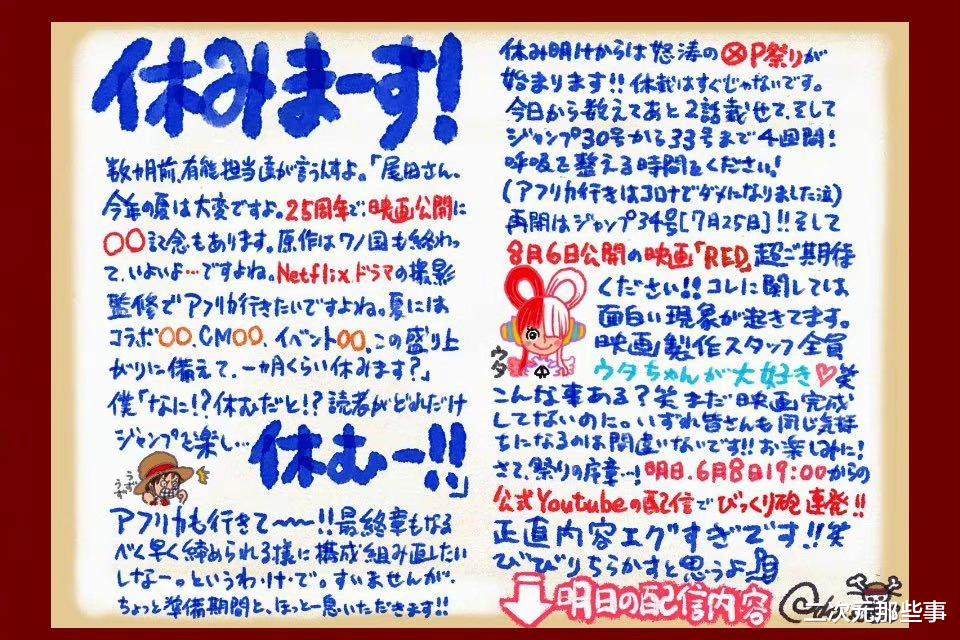 休みまーす!
数カ月前、有能担当達が言うんすよ。「尾田さん、
今年の夏は大変ですよ。25周年で、映画公開に
〇〇記念もあります。原作はワノ国も終わっ
て、いよいよ…ですよね。Netflixドラマの撮影
監修でアフリカ行きたいですよね。夏には
コラボ〇〇、CM〇〇、イベント〇〇、この盛り上
がりに備えて、一カ月くらい休みます?」
僕「なに!?休むだと!?読者がどれだけ
ジャンプを楽し…
休むー!!」
うず
うず
アフリカも行きて〜〜!!最終章もなる
べく早く締められる様に構成組み直したい
しなー。というわ・け・で。すいませんが、
ちょっと準備期間と、ほっと一息いただきます!!
休み明けからは怒涛の㊇P祭りが
始まります!!休載はすぐじゃないです。
今日から数えてあと2話載せて、そして
ジャンプ30号から33号まで4週間!
呼吸を整える時間をください!
(アフリカ行きはコロナでダメになりました泣)
再開はジャンプ34号[7月25日]!!そして
8月6日公開の映画「RED」超ご期待
ください!!コレに関しては
面白い現象が起きてます。
映画製作スタッフ全員
ウタちゃんが大好き♡笑
ウタ
こんな事ある?笑 まだ映画完成
してないのに。いずれ皆さんも同じ気持
ちになるのは間違いないです!!お楽しみに!
さて、祭りの序章…!明日、6月8日19:00からの
公式Youtubeの配信でびっくり砲連発!!
正直内容エグすぎです!!笑
びびりちらかすと思うよ
明日の配信内容
二次元那些事